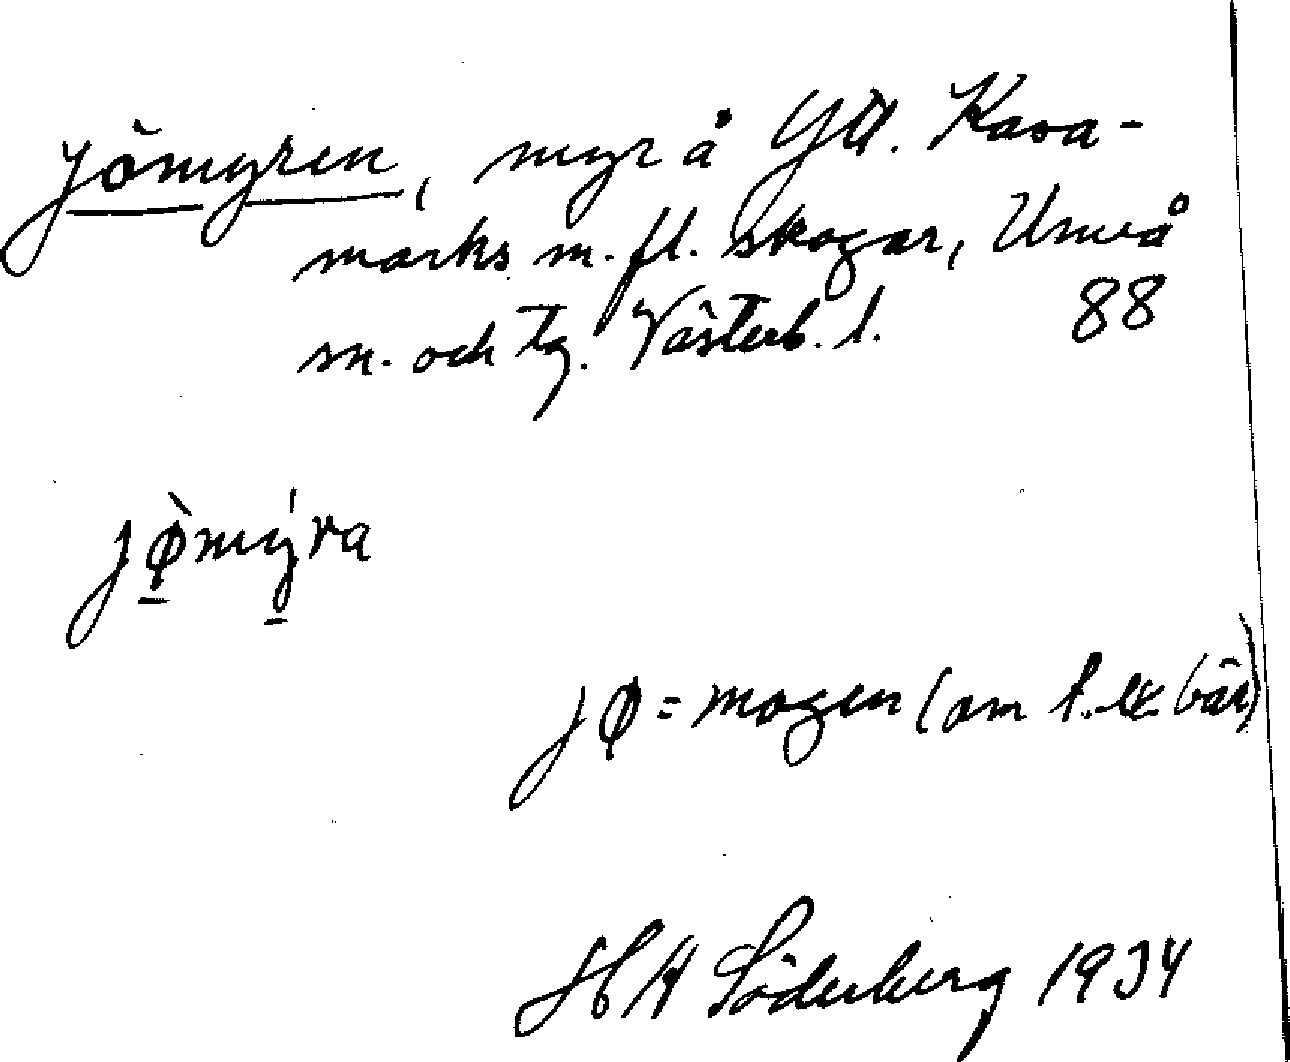 Jömyren, myr å Ytt. Kasa-
marks m. fl. skogar, Umeå
sn. och tg. Västerb. l. 88
jø̀mýra
jø = mogen (om t. ex. bär)
H H Söderberg 1934